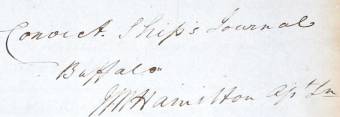 Convict Ship's Journal
Buffalo
JW Hamilton